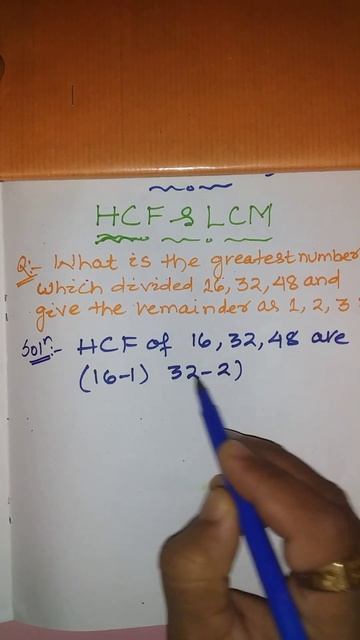 HCF & LCM
Q:- What is the greatest number
which divided 16, 32, 48 and
give the remainder as 1, 2, 3
Solⁿ:- HCF of 16, 32, 48 are
(16-1) 32-2)